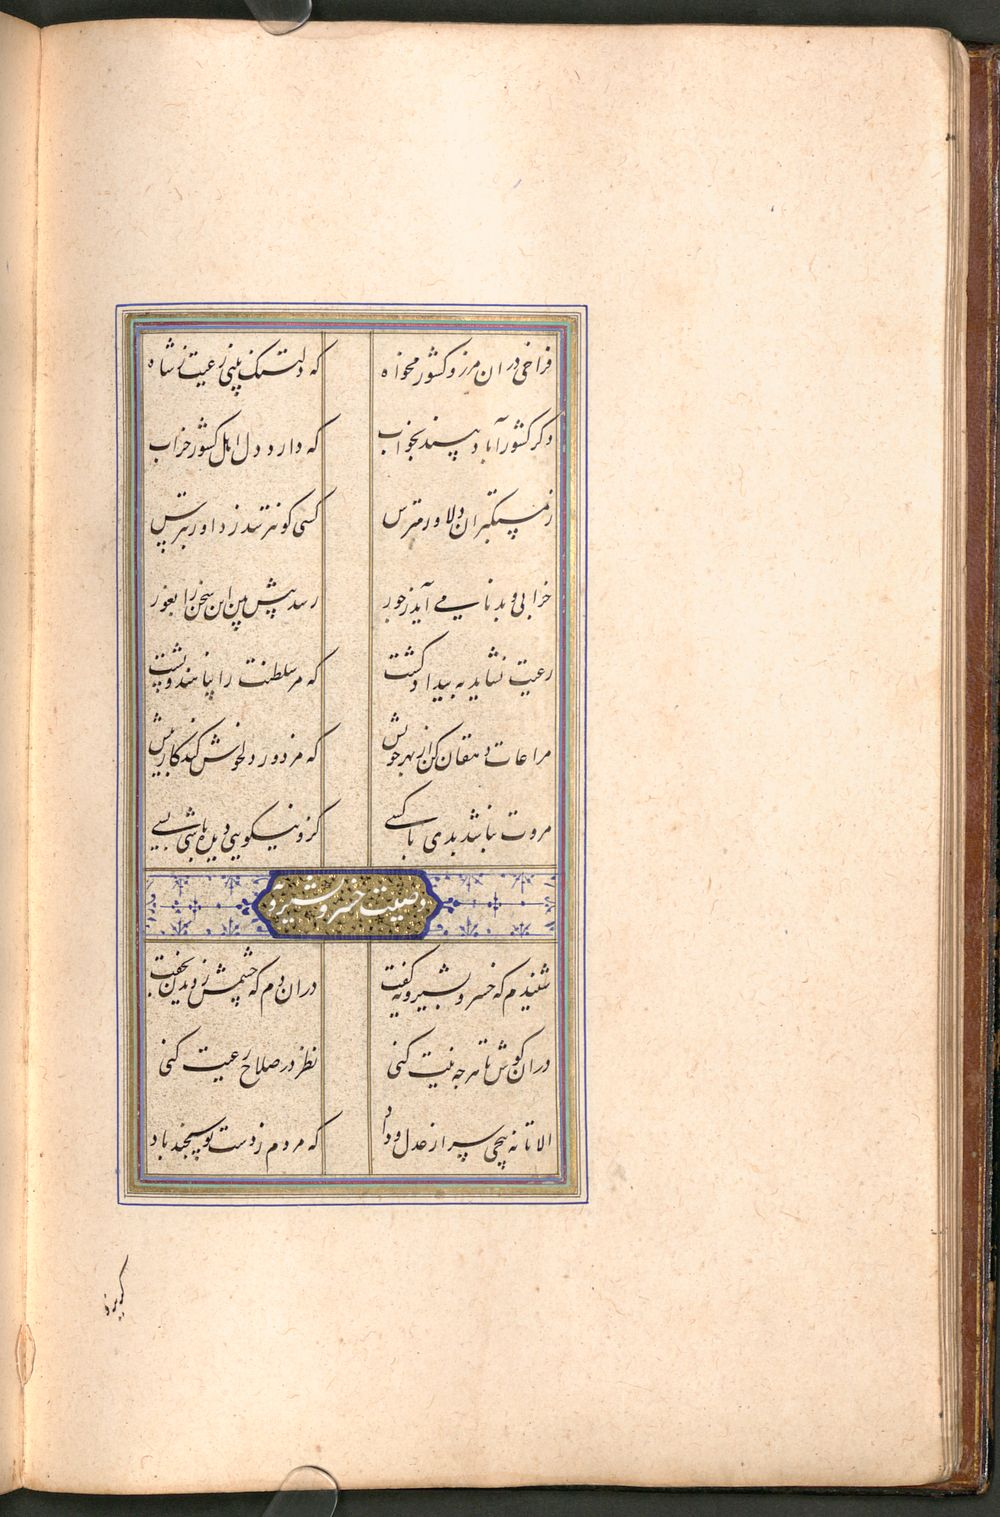 فراخی دران مرز و کشور مخواه که دلتنگ بینی رعیت ز شاه
دکر کشور آباد بیند بخواب که دارد دل اهل کشور خراب
ز مستکبران دلاور مترس کسی کو نترسد ز داور بترس
خرابی و بدنامی آید ز جور رسد پیش بین این سخن را بغور
رعیت نشاید به بیداد کشت که مر سلطنت را پناهند و پشت
مراعات دهقان کن از بهر خویش که مزدور دلخوش کند کار بیش
مروت نباشد بدی با کسی کزو نیکویی دیده باشی بسی
وصیت خسرو شیرویه
شنیدم که خسرو بشیرویه گفت دران دم که چشمش ز دیدن بخفت
دران کوش تا هرچه نیت کنی نظر در صلاح رعیت کنی
الا تا نه پیچی سر از عدل و داد که مردم ز دست تو باد
کریزد